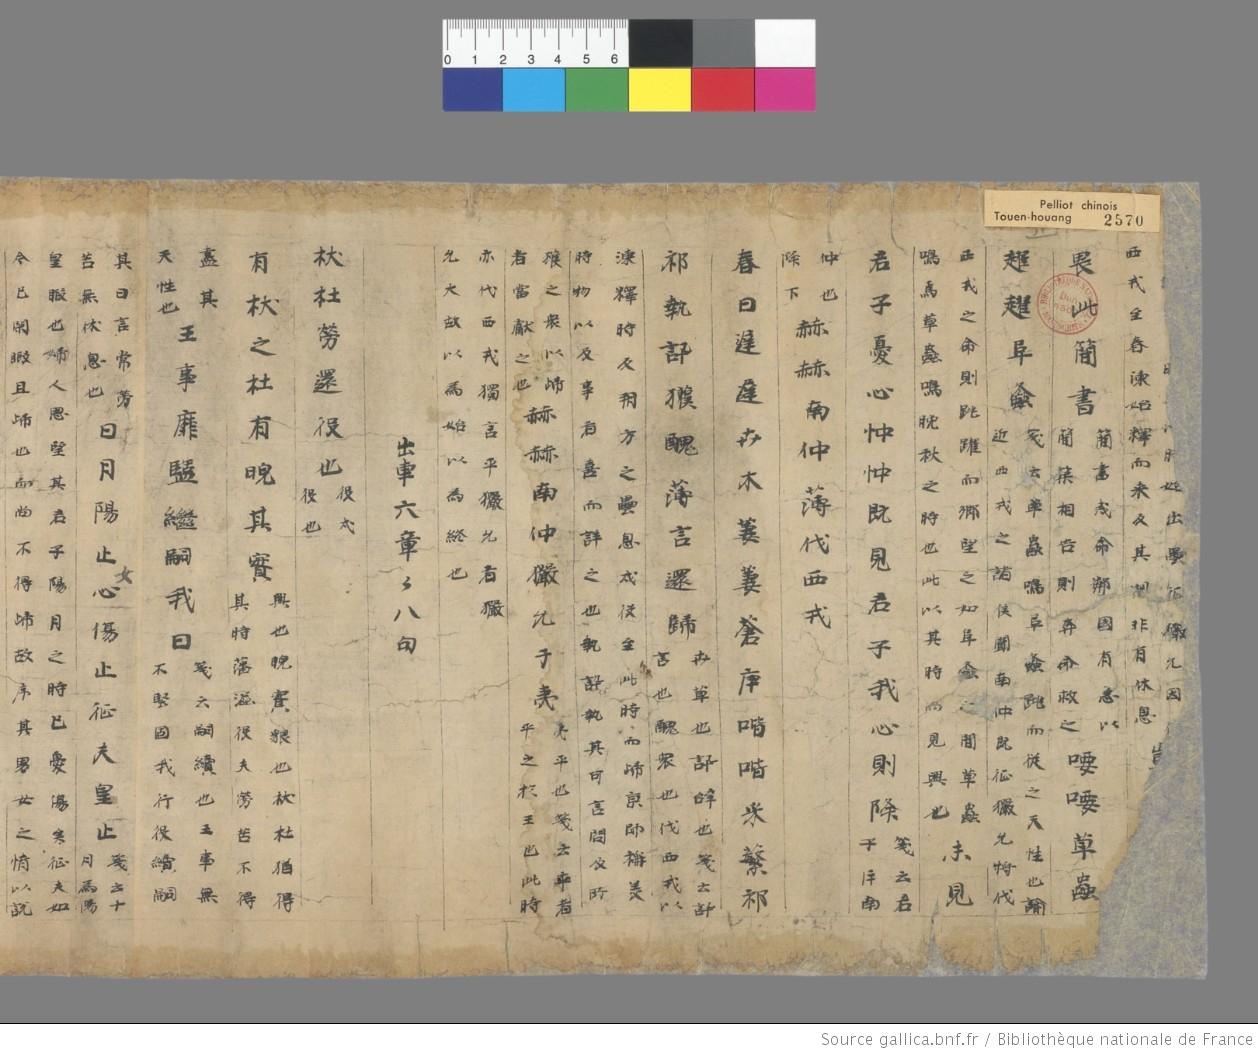 Pelliot chinois
Touen-houang 2570
0 1 2 3 4 5 6
西戎至春凍始釋而来反其間非有休息
畏此簡書
簡書戎命鄰國有急以
簡策相告則奔命救之
喓喓草蟲
趯趯阜螽
箋云草蟲鳴阜螽跳而従之天性也諭
近西戎之諸侯聞南仲既征玁允将伐
西戎之命則跳躍而鄉望之如阜螽之聞草蟲
鳴焉草蟲鳴晚秋之時也此以其時所見興也
未見
君子憂心忡忡既見君子我心則降
箋云君
子斥南
仲也
降下
赫赫南仲薄伐西戎
春日遅遅卉木萋萋倉庚喈喈采蘩祁
祁執訊獲醜薄言還歸
卉草也訊辝也箋云訊
言也醜衆也伐西戎以
凍釋時反朔方之壘息戎役至此時而歸京師稱美
時物以及事者喜而詳之也執訊執其可言問及所
獲之衆以歸
者當獻之也
赫赫南仲玁允于夷
夷平也箋云平者
平之於王也此時
亦伐西戎獨言平玁允者玁
允大故以為始以為終也
出車六章々八句
杕杜勞還役也
役戍
役也
有杕之杜有睆其實
興也睆實貌也杕杜猶得
其時蕃滋役夫勞苦不得
盡其
天性也
王事靡盬繼嗣我日
箋云嗣續也王事無
不堅固我行役續嗣
其日言常勞
苦無休息也
日月陽止女心傷止征夫皇止
箋云十
月為陽
皇暇也婦人思望其君子陽月之時已憂傷矣征夫如
今已閑暇且歸也而尚不得歸故序其男女之情以說
Source gallica.bnf.fr / Bibliothèque nationale de France